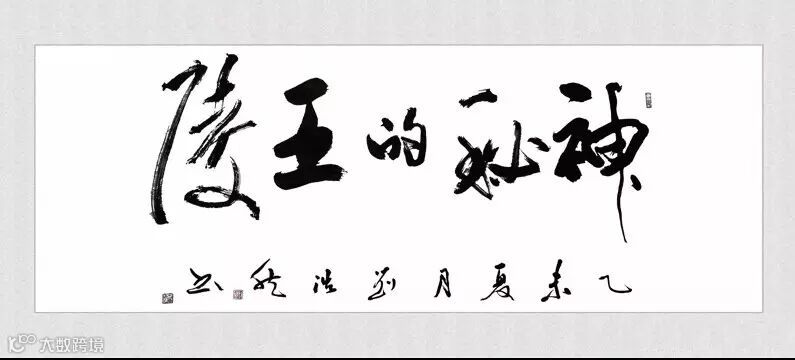 神秘的王陵
乙未夏月刘浩然书
大数跨境